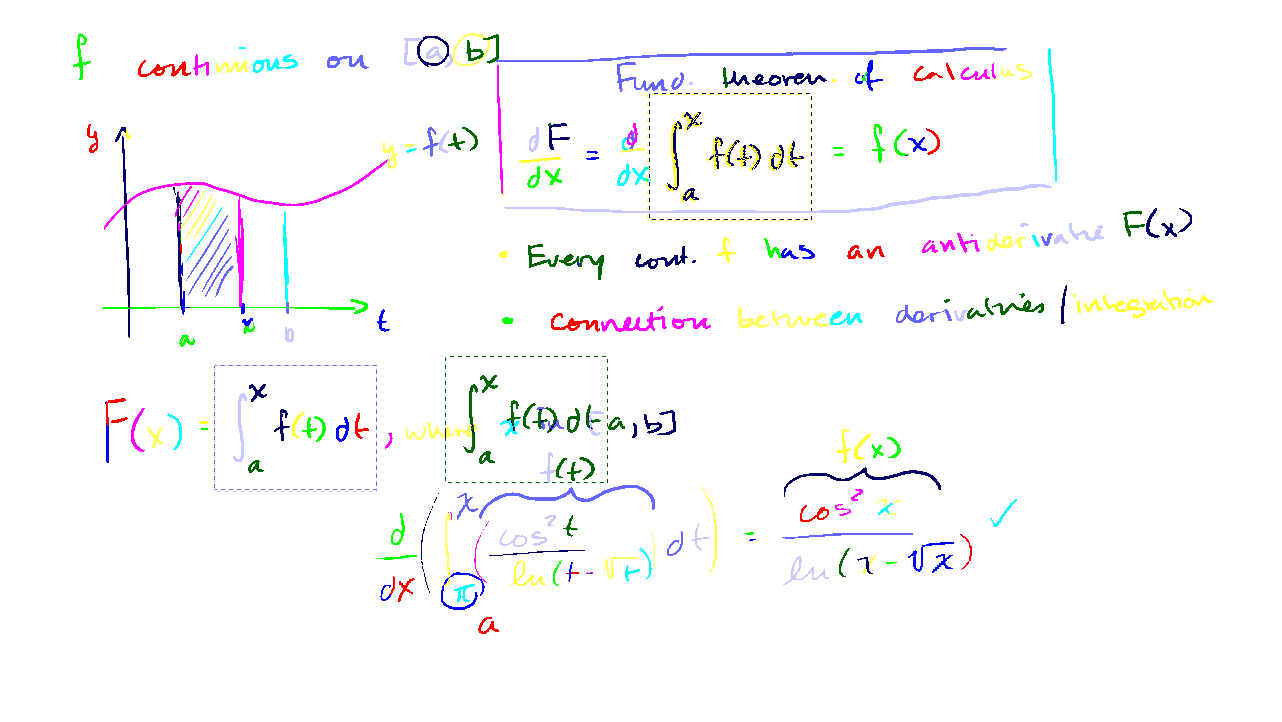 f continuous on [a, b]
Fund. theorem of calculus
y
y = f(t)
dF/dx = d/dx ∫_a^x f(t) dt = f(x)
• Every cont. f has an antiderivative F(x)
a x b t
• Connection between derivatives / integration
F(x) = ∫_a^x f(t) dt, where x in [a, b]
∫_a^x f(t) dt
f(t)
f(x)
d/dx ( ∫_π^x ( cos² t / ln(t - √t) ) dt ) = cos² x / ln(x - √x) ✓
a